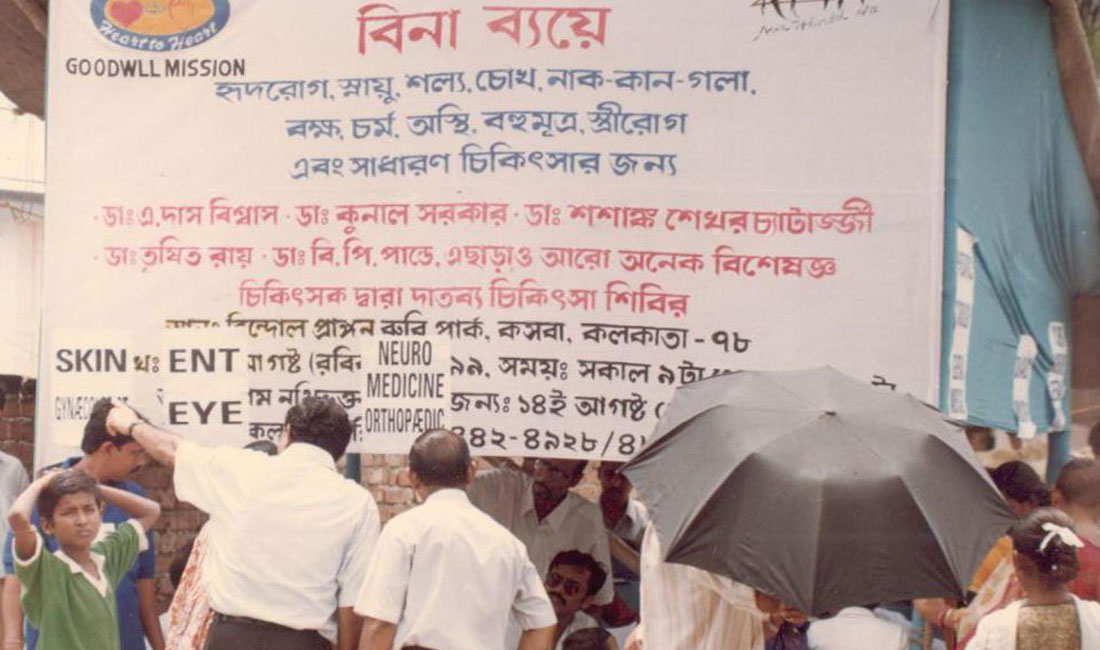 Heart to Heart
GOODWLL MISSION
বিনা ব্যয়ে
হৃদরোগ, স্নায়ু, শল্য, চোখ, নাক-কান-গলা,
বক্ষ, চর্ম, অস্থি, বহুমূত্র, স্ত্রীরোগ
এবং সাধারণ চিকিৎসার জন্য
·ডাঃ এ.দাস বিশ্বাস · ডাঃ কুনাল সরকার · ডাঃ শশাঙ্ক শেখর চ্যাটার্জ্জী
·ডাঃ তৃষিত রায় · ডাঃ বি.পি.পান্ডে, এছাড়াও আরো অনেক বিশেষজ্ঞ
চিকিৎসক দ্বারা দাতব্য চিকিৎসা শিবির
প্রাঙ্গন রুবি পার্ক, কসবা, কলকাতা - ৭৮
SKIN খঃ ENT আগষ্ট (রবি NEURO ৯৯, সময়ঃ সকাল ৯টা
MEDICINE
EYE ORTHOPÆDIC জন্যঃ ১৪ই আগষ্ট
৪৪২-৪৯২৮/৪